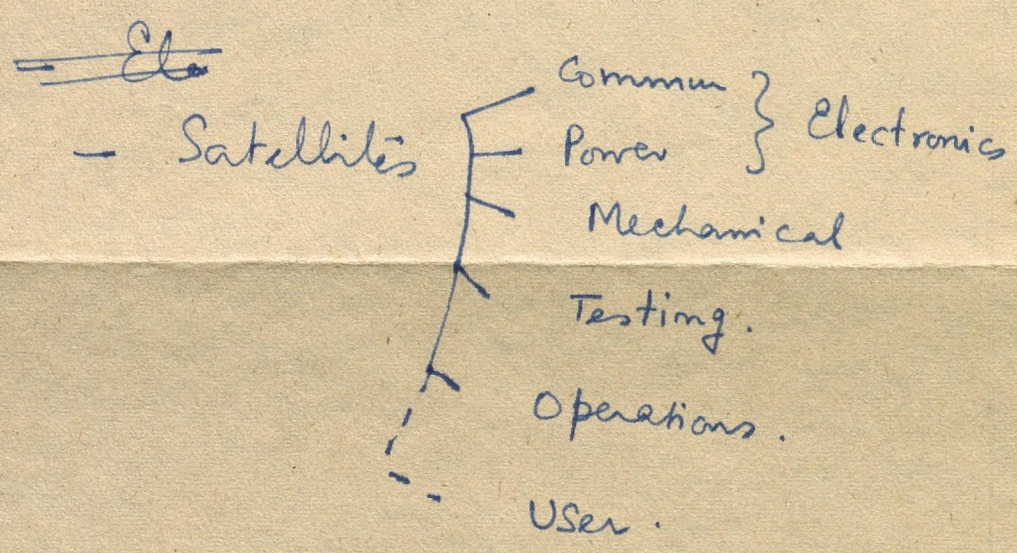 - Satellites
Commun
Power
} Electronics
Mechanical
Testing.
Operations.
User.